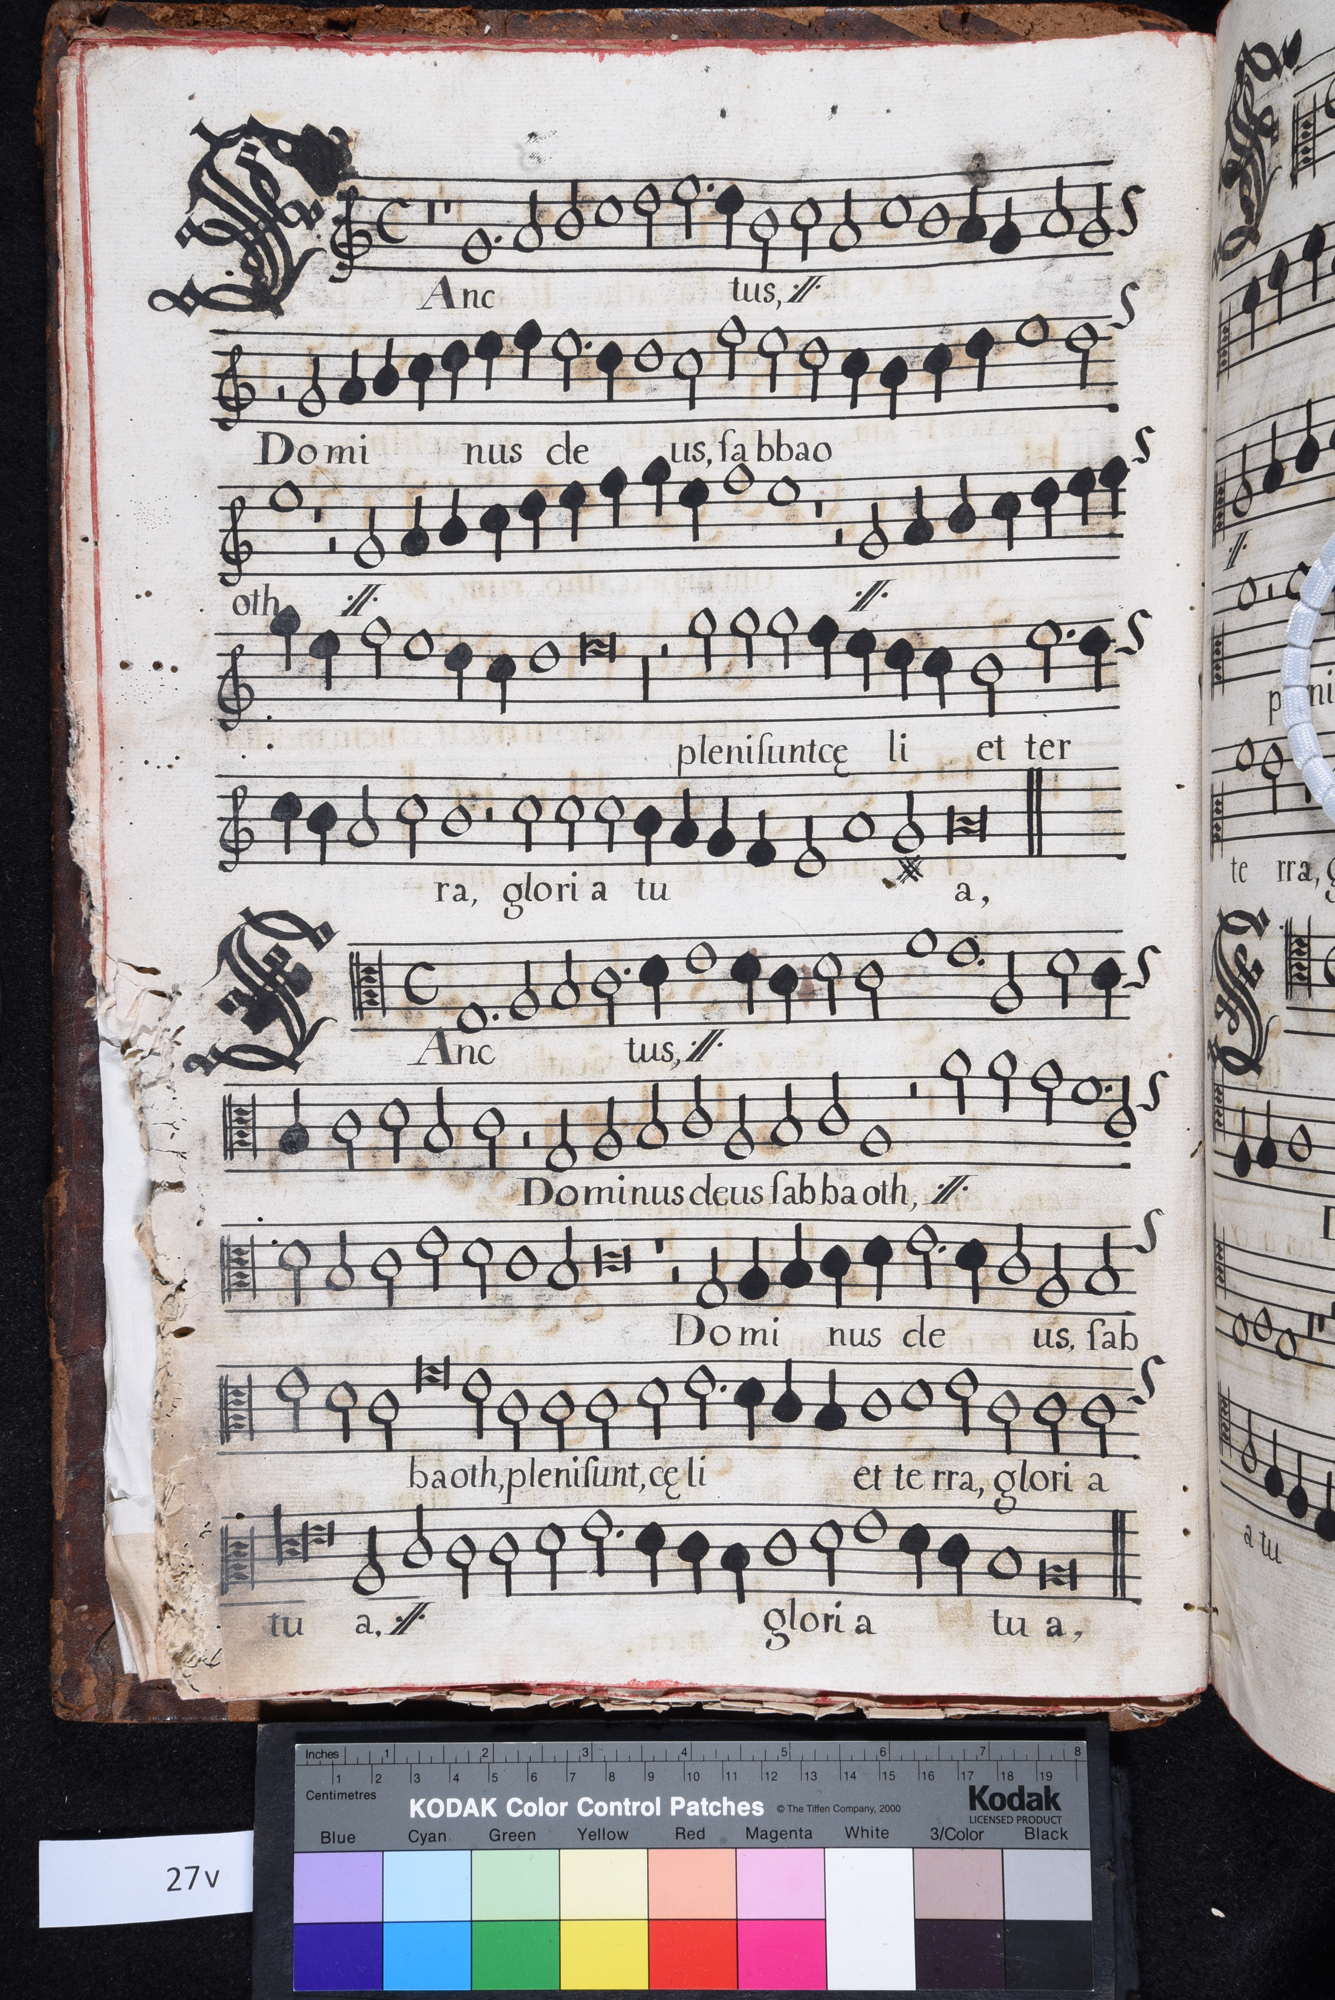 SAnc tus, //.
Domi nus de us, ſabbao
oth, //. //.
pleniſuntcę li et ter
ra, gloria tu a,
SAnc tus, //.
Dominus deus ſabbaoth, //.
Domi nus de us, ſab
baoth, pleniſunt, cęli et te rra, gloria
tu a, //. gloria tu a,
te rra,
a tu
Inches 1 2 3 4 5 6 7 8
Centimetres 1 2 3 4 5 6 7 8 9 10 11 12 13 14 15 16 17 18 19
KODAK Color Control Patches © The Tiffen Company, 2000 Kodak
LICENSED PRODUCT
Blue Cyan Green Yellow Red Magenta White 3/Color Black
27v